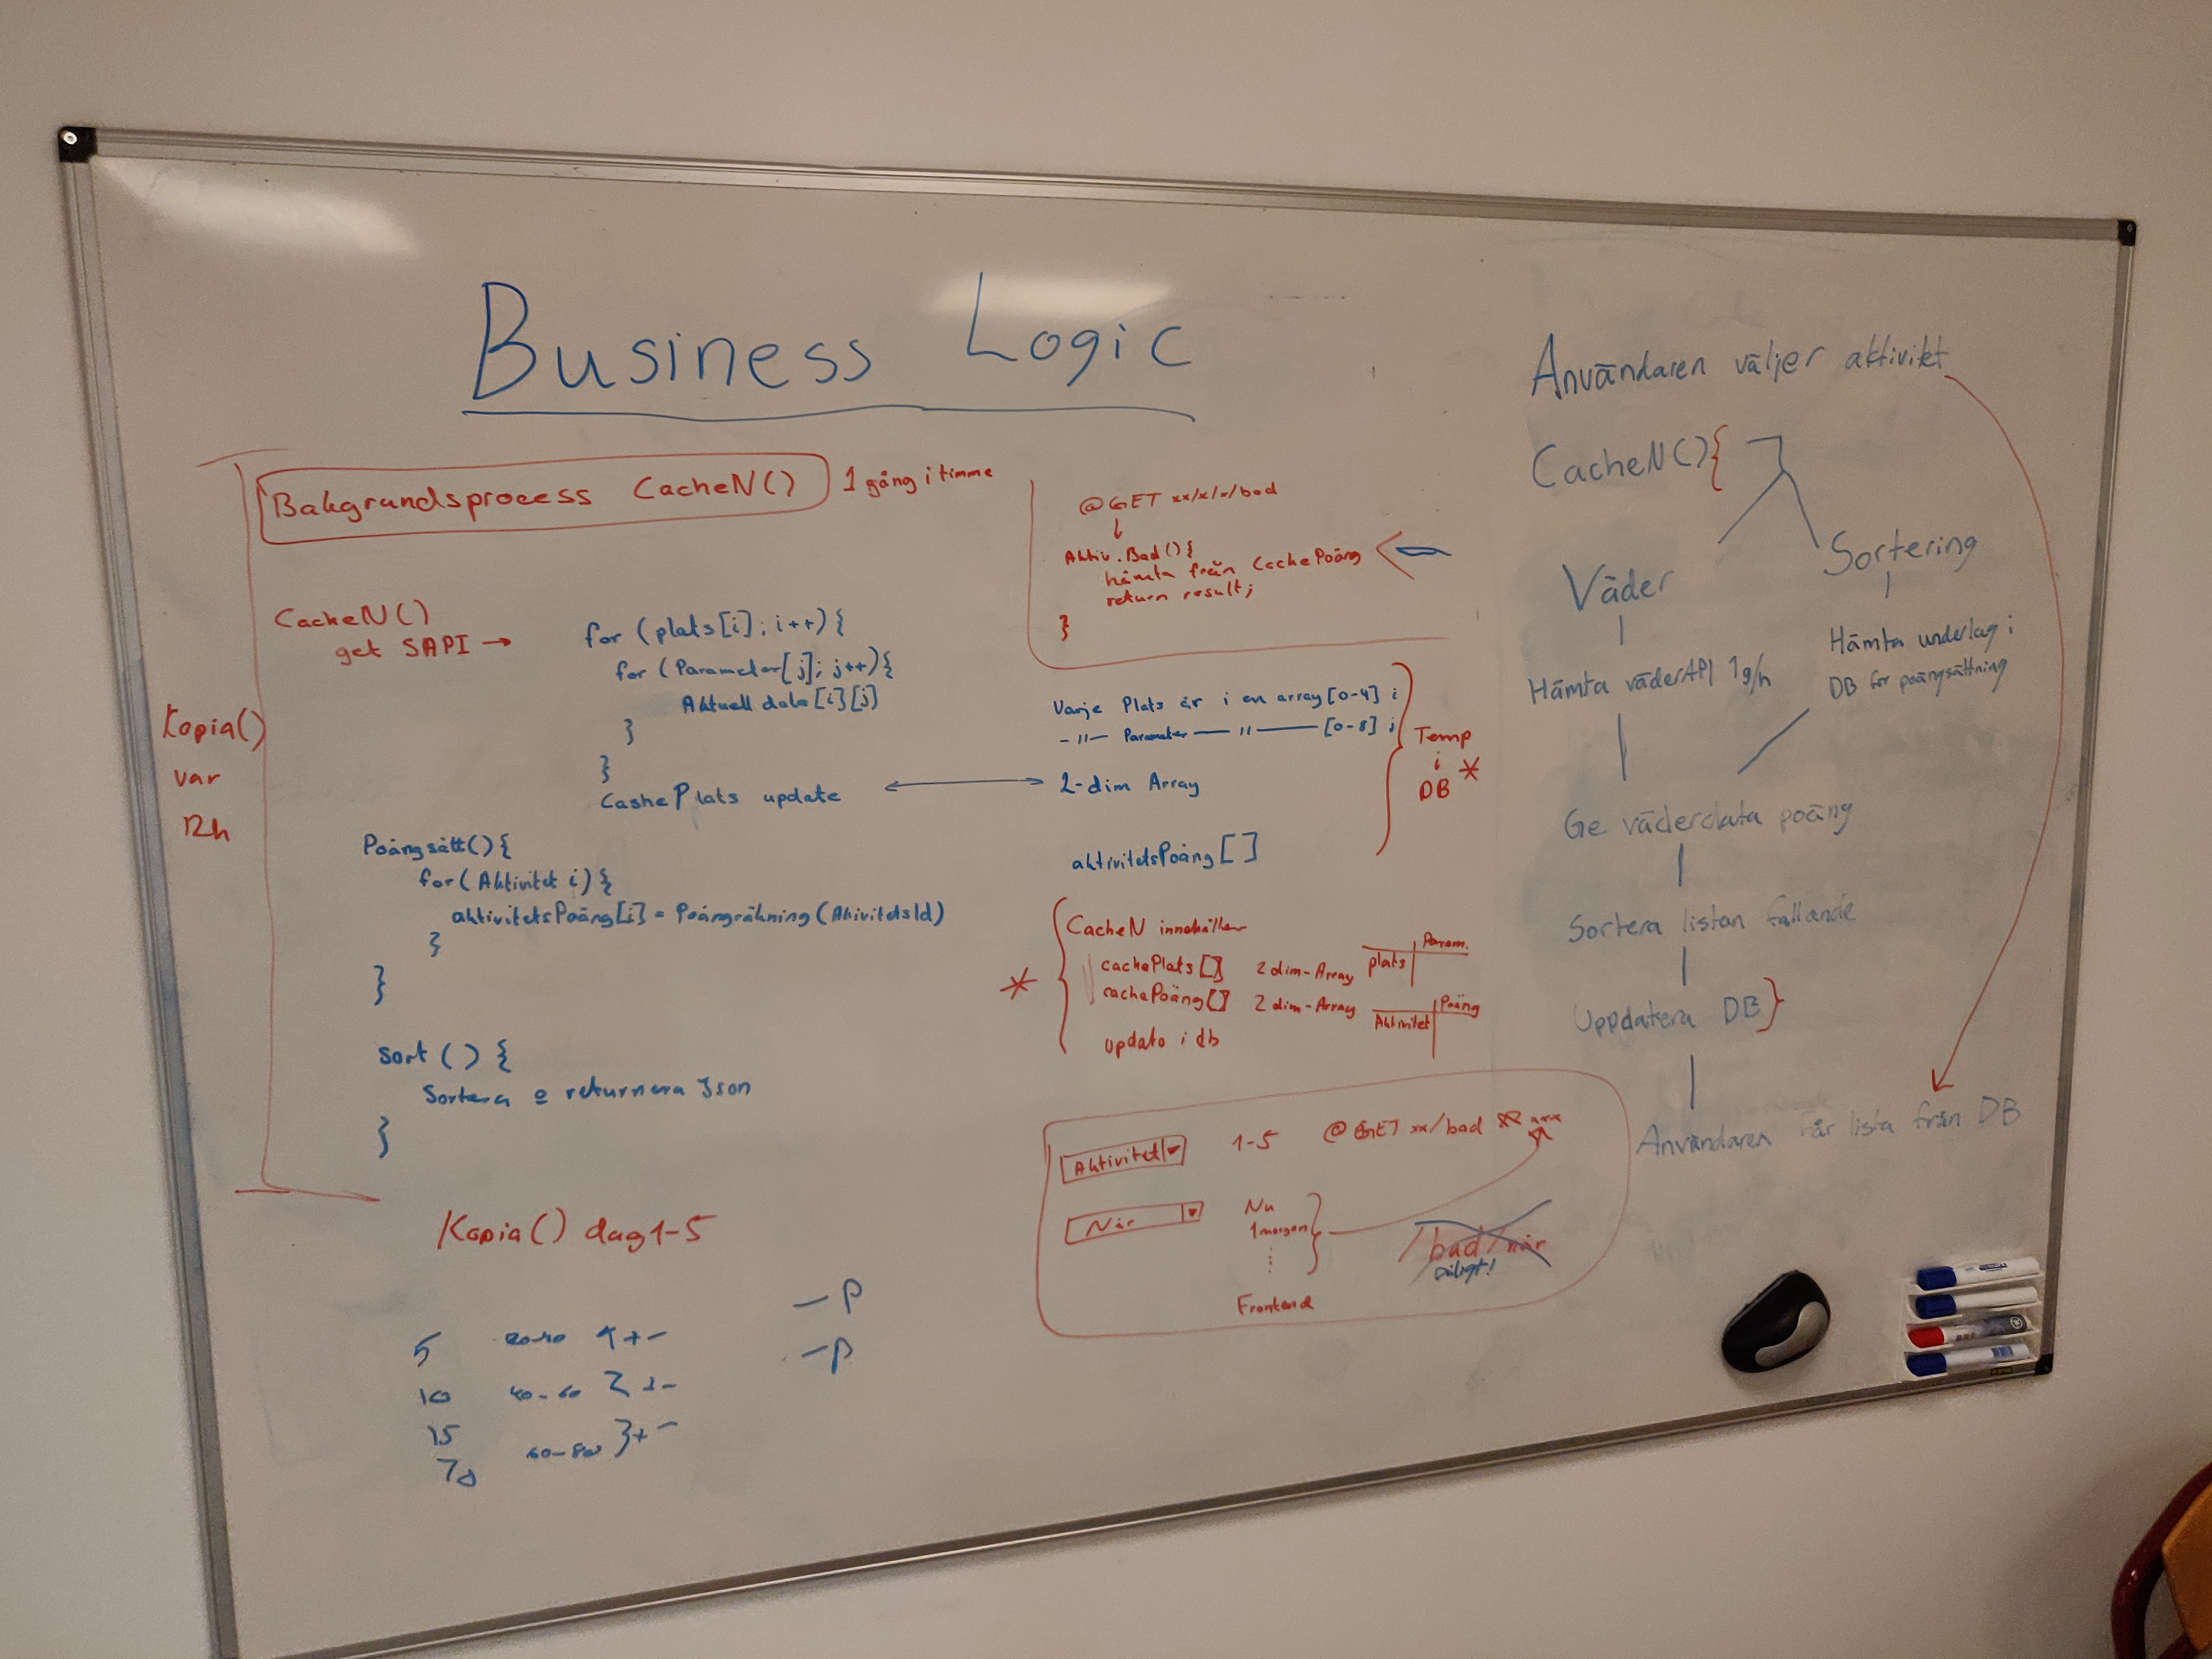 Business Logic
Bakgrundsprocess CacheN() 1 gång i timme
CacheN()
get SAPI →
for (plats[i]; i++){
for (Parameter[j]; j++){
Aktuell data[i][j]
}
}
CashePlats update
Kopia()
var
12h
Poängsätt(){
for(Aktivitet i){
aktivitetsPoäng[i] = Poängräkning(AkivitetsId)
}
}
sort(){
Sortera o returnera Json
}
Kopia() dag1-5
5
10
15
40-60 2
60-80 3+-
-P
-P
@GET xx/x/x/bad
↓
Aktiv.Bad(){
hämta från CachePoäng
return result;
}
Varje Plats är i en array[0-4] i
-11- Parameter - 11 - [0-8] j
2-dim Array
aktivitetsPoäng[]
Temp
i
DB *
* CacheN innehåller
cachePlats[] 2 dim-Array plats Param.
cachePoäng[] 2 dim-Array Aktivitet Poäng
update i db
Aktivitet 1-5 @GET xx/bad xxx
När
Nu
1 morgon
/bad/när
Frontend
Användaren väljer aktivitet
CacheN(){
Väder
Sortering
Hämta väderAPI 1g/h
Hämta underlag i
DB för poängsättning
Ge väderdata poäng
Sortera listan fallande
Uppdatera DB}
Användaren får lista från DB